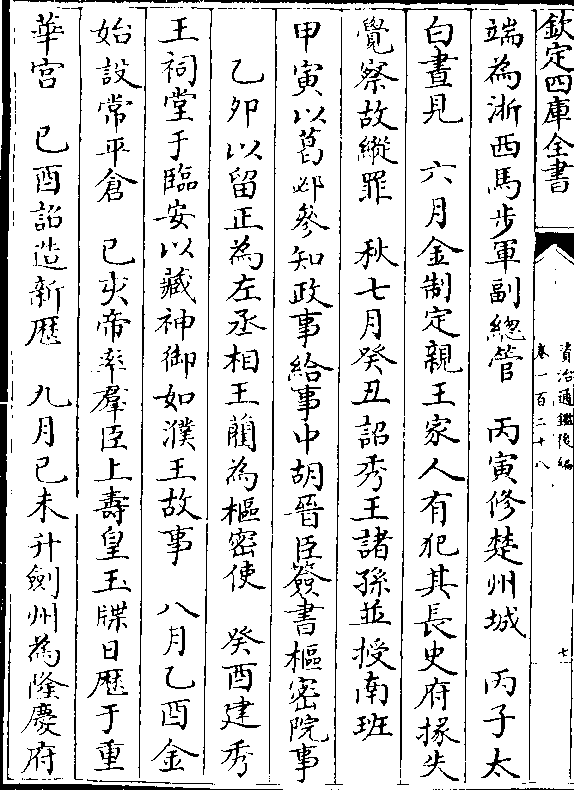 欽定四庫全書
資治通鑑後編
卷一百二十八
七
端為浙西馬步軍副總管　丙寅修楚州城　丙子太
白晝見　六月金制定親王家人有犯其長史府掾失
覺察故縱罪　秋七月癸丑詔秀王諸孫並授南班
甲寅以葛邲參知政事給事中胡晉臣簽書樞密院事
乙夘以留正為左丞相王藺為樞密使　癸酉建秀
王祠堂于臨安以藏神御如濮王故事　八月乙酉金
始設常平倉　己亥帝率羣臣上壽皇玉牒日歷于重
華宫　己酉詔造新歷　九月己未升劍州為隆慶府